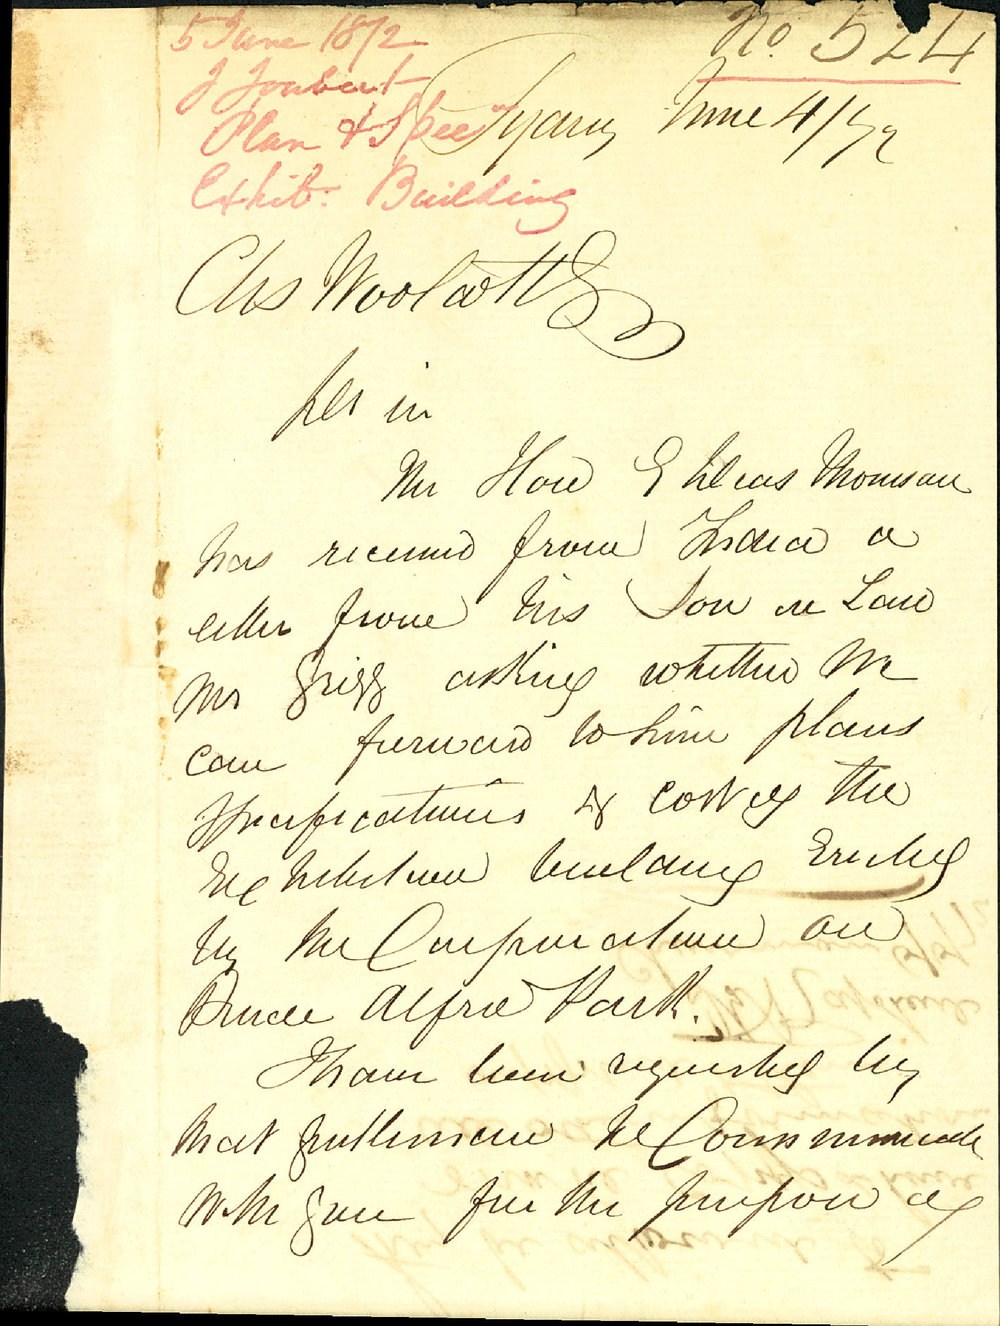 No. 524
5 June 1872
J Joubert
Plan & Spec
Exhib. Building
Sydney June 4/72
Chs Woolcott Esq
Dear Sir
The Hon E Deas Thomson
has received from India a
letter from his Son in Law
Mr Grigg asking whether we
can forward to him plans
specifications & cost of the
Exhibition building Erected
by the Corporation on
Prince Alfred Park.
I have been requested by
that gentleman to Communicate
with you for the purpose of